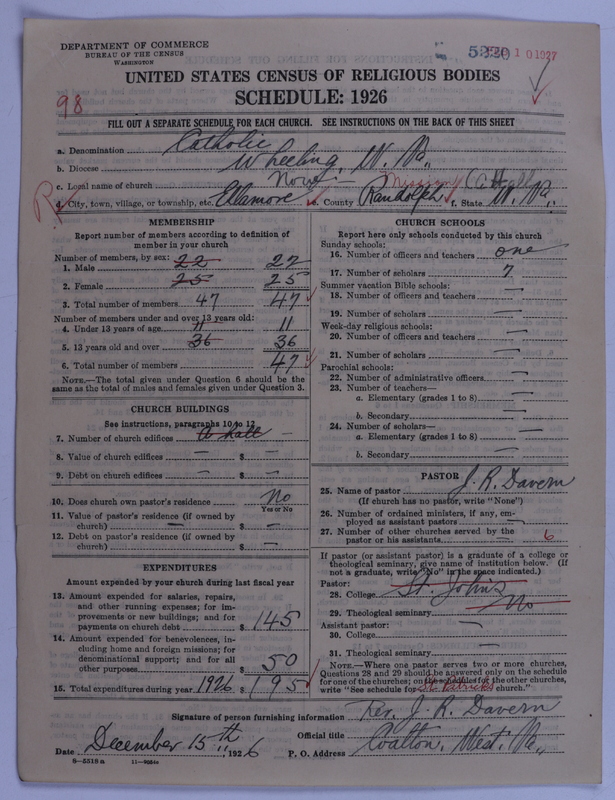 DEPARTMENT OF COMMERCE
BUREAU OF THE CENSUS
WASHINGTON
5330 FEB 10 1927
UNITED STATES CENSUS OF RELIGIOUS BODIES
SCHEDULE: 1926
98
FILL OUT A SEPARATE SCHEDULE FOR EACH CHURCH. SEE INSTRUCTIONS ON THE BACK OF THIS SHEET
a. Denomination Catholic
b. Diocese Wheeling, W. Va.,
c. Local name of church None Mission (a Hall)
d. City, town, village, or township, etc. Ellamore e. County Randolph f. State W. Va.,
MEMBERSHIP
Report number of members according to definition of
member in your church
Number of members, by sex:
1. Male 22 22
2. Female 25 25
3. Total number of members 47 47
Number of members under and over 13 years old:
4. Under 13 years of age 11 11
5. 13 years old and over 36 36
6. Total number of members 47
NOTE.—The total given under Question 6 should be
the same as the total of males and females given under Question 3.
CHURCH BUILDINGS
See instructions, paragraphs 10 to 12
7. Number of church edifices a hall —
8. Value of church edifices — $ —
9. Debt on church edifices — $ —
10. Does church own pastor's residence No
Yes or No
11. Value of pastor's residence (if owned by
church) — $ —
12. Debt on pastor's residence (if owned by
church) $ —
EXPENDITURES
Amount expended by your church during last fiscal year
13. Amount expended for salaries, repairs,
and other running expenses; for im-
provements or new buildings; and for
payments on church debt $ 145
14. Amount expended for benevolences, in-
cluding home and foreign missions; for
denominational support; and for all
other purposes $ 50
15. Total expenditures during year 1926 $ 195
CHURCH SCHOOLS
Report here only schools conducted by this church
Sunday schools:
16. Number of officers and teachers one
17. Number of scholars 7
Summer vacation Bible schools:
18. Number of officers and teachers —
19. Number of scholars —
Week-day religious schools:
20. Number of officers and teachers —
21. Number of scholars —
Parochial schools:
22. Number of administrative officers —
23. Number of teachers—
a. Elementary (grades 1 to 8) —
b. Secondary —
24. Number of scholars—
a. Elementary (grades 1 to 8) —
b. Secondary —
PASTOR
25. Name of pastor J. R. Davern
(If church has no pastor, write "None")
26. Number of ordained ministers, if any, em-
ployed as assistant pastors —
27. Number of other churches served by the
pastor or his assistants — 6
If pastor (or assistant pastor) is a graduate of a college or
theological seminary, give name of institution below. (If
not a graduate, write "No" in the space indicated.)
Pastor:
28. College St. John's
29. Theological seminary No
Assistant pastor:
30. College —
31. Theological seminary —
NOTE.—Where one pastor serves two or more churches,
Questions 28 and 29 should be answered only on the schedule
for one of the churches; on the schedules for the other churches,
write "See schedule for St. Patrick's church."
Signature of person furnishing information Rev. J. R. Davern
Official title
Date December 15th, 1926 P. O. Address Coalton, West. Va.,
8—5518 a